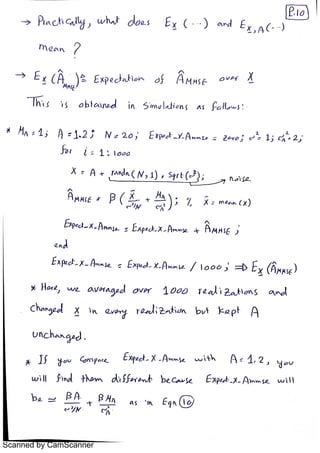 P.10
→ Practically, what does E_X (...) and E_X,A (..)
mean ?
→ E_X (Â_MMSE) ≅ Expectation of Â_MMSE over X
This is obtained in simulations as follows:
* M_A = 1; A = 1.2; N = 20; Expect_X_Ammse = zero; σ² = 1; σ_A² = 2;
for i = 1:1000
X = A + randn(N,1) * sqrt(σ²);
→ noise
Â_MMSE = β ( x̄ / σ²/N + M_A / σ_A² ); % x̄ = mean(x)
Expect_X_Ammse = Expect_X_Ammse + Â_MMSE ;
end
Expect_X_Ammse = Expect_X_Ammse / 1000 ; ⇒ E_X (Â_MMSE)
* Here, we averaged over 1000 realizations and
changed X in every realization but kept A
unchanged.
* If you compare Expect_X_Ammse with A = 1.2, you
will find them different because Expect_X_Ammse will
be ≃ βA / σ²/N + βM_A / σ_A² as in Eqn (10)
Scanned by CamScanner